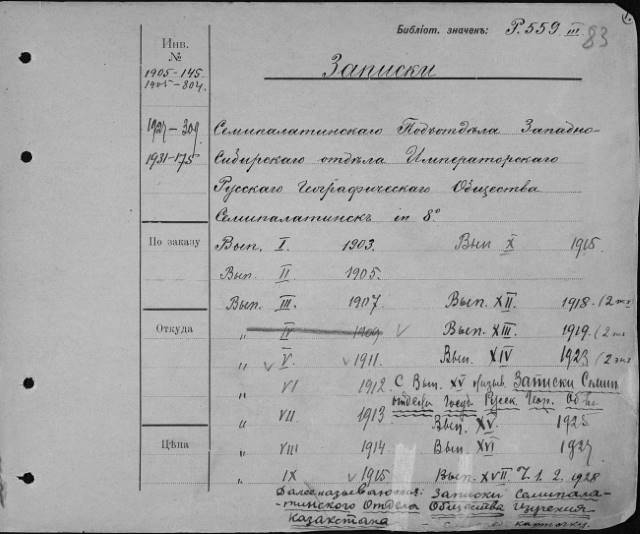 Библіот. значенъ: Р.559 III 83
Инв.
№
1905-145
1905-804
1927-309
1931-175
Записки
Семипалатинскаго Подотдѣла Западно-
Сибирскаго отдѣла Императорскаго
Русскаго Географическаго Общества
Семипалатинскъ in 8°
По заказу
Вып. I. 1903. Вып X 1915
Вып. II 1905.
Вып. III. 1907 Вып. XII. 1918. (2 экз
Откуда
„ IV 1909 Вып. XIII. 1919. (2 экз
„ V. 1911. Вып. XIV 1923 (2 экз
„ VI 1912 С Вып. XV Записки Семип
„ VII 1913 отдела Госуд Русск. Геог. Общ
Вып. XV. 1925
Цѣна
„ VIII 1914 Вып. XVI 1927
„ IX 1915 Вып. XVII Ч. 1. 2. 1928
Далее называются: Записки Семипала-
-тинского Отдела Общества Изучения
Казахстана
карточку.